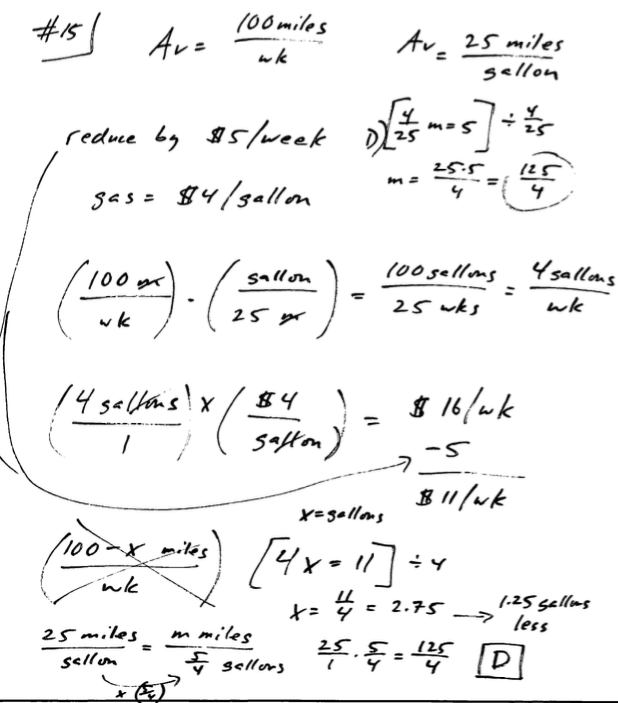 #15
Av = 100 miles / wk    Av = 25 miles / gallon
reduce by $5/week    D) [4/25 m = 5] ÷ 4/25
gas = $4/gallon    m = 25·5/4 = 125/4
(100 m / wk) · (gallon / 25 m) = 100 gallons / 25 wks = 4 gallons / wk
(4 gallons / 1) x ($4 / gallon) = $16/wk
-5
$11/wk
x = gallons
(100 - x miles / wk)    [4x = 11] ÷ 4
x = 11/4 = 2.75 → 1.25 gallons less
25 miles / gallon = m miles / 5/4 gallons    25/1 · 5/4 = 125/4    D
x (5/4)